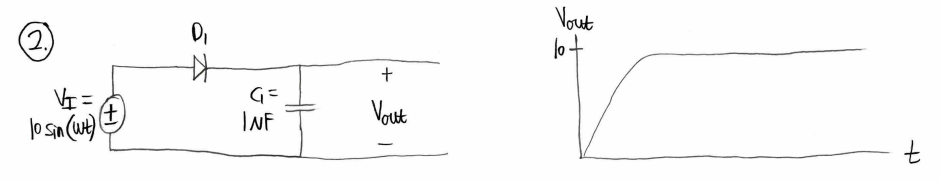 2.
D1
VI =
10 sin(wt)
±
C1 =
1NF
+
Vout
−
Vout
10
t